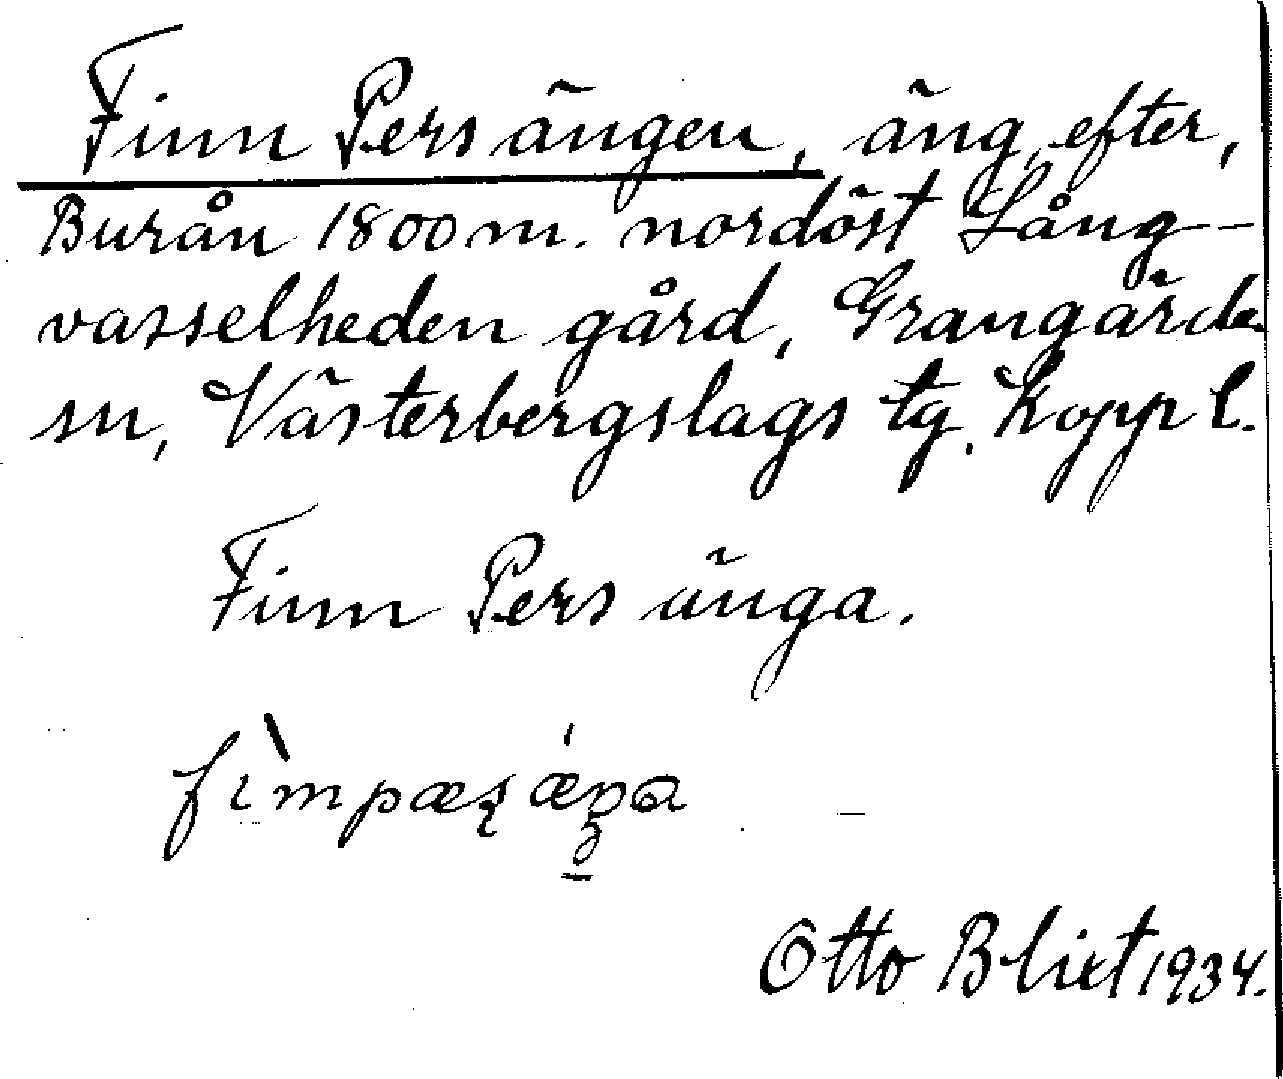 Finn Persängen, äng, efter,
Burån 1800 m. nordöst Lång-
vasselheden gård, Grangärde
sn, Västerbergslags tg. Kopp l.
Finn Pers änga.
Otto Blixt 1934.